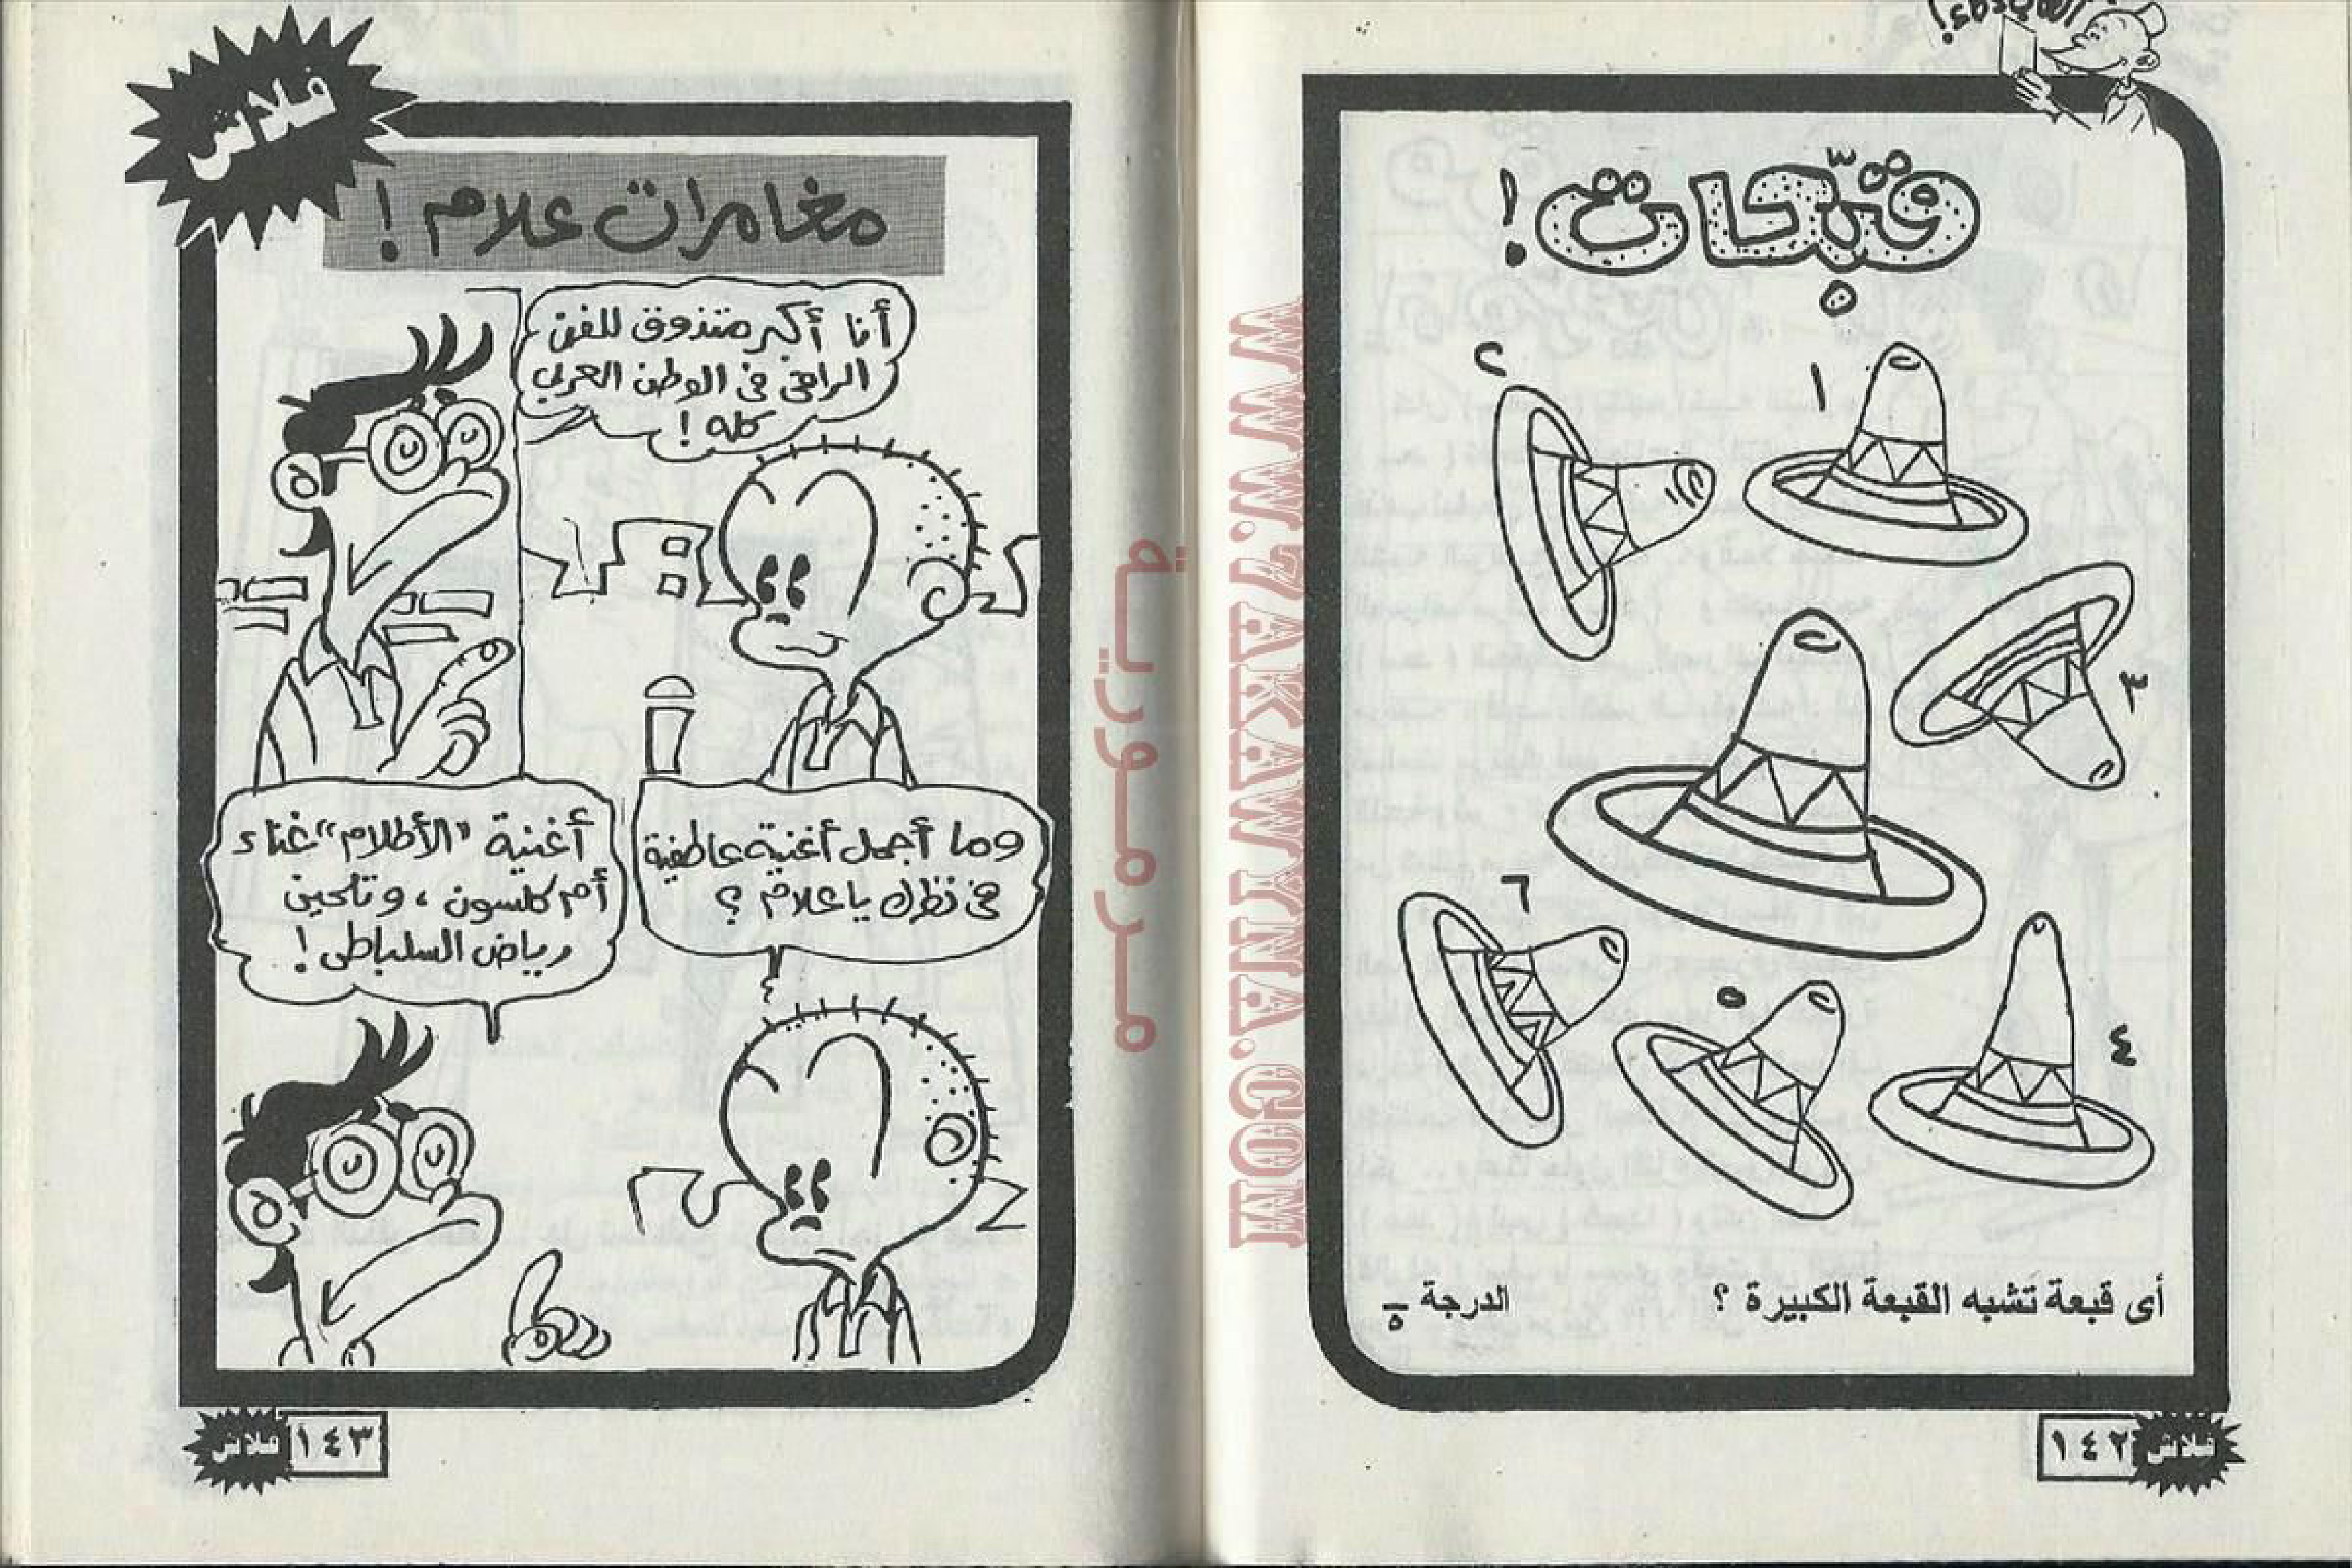 قبّعات !
١
٢
٣
٤
٥
٦
أى قبعة تشبه القبعة الكبيرة ؟
الدرجة ٥
١٤٢
فلاش
WWW.7AKAWYNA.COM
مرمورية
فلاش
مغامرات علام !
أنا أكبر متذوق للفن
الراقى فى الوطن العربى
كله !
وما أجمل أغنية عاطفية
فى نظرك يا علام ؟
أغنية "الأطلام" غناء
أم كلسون ، وتلحين
رياض السلباطى !
١٤٣
فلاش